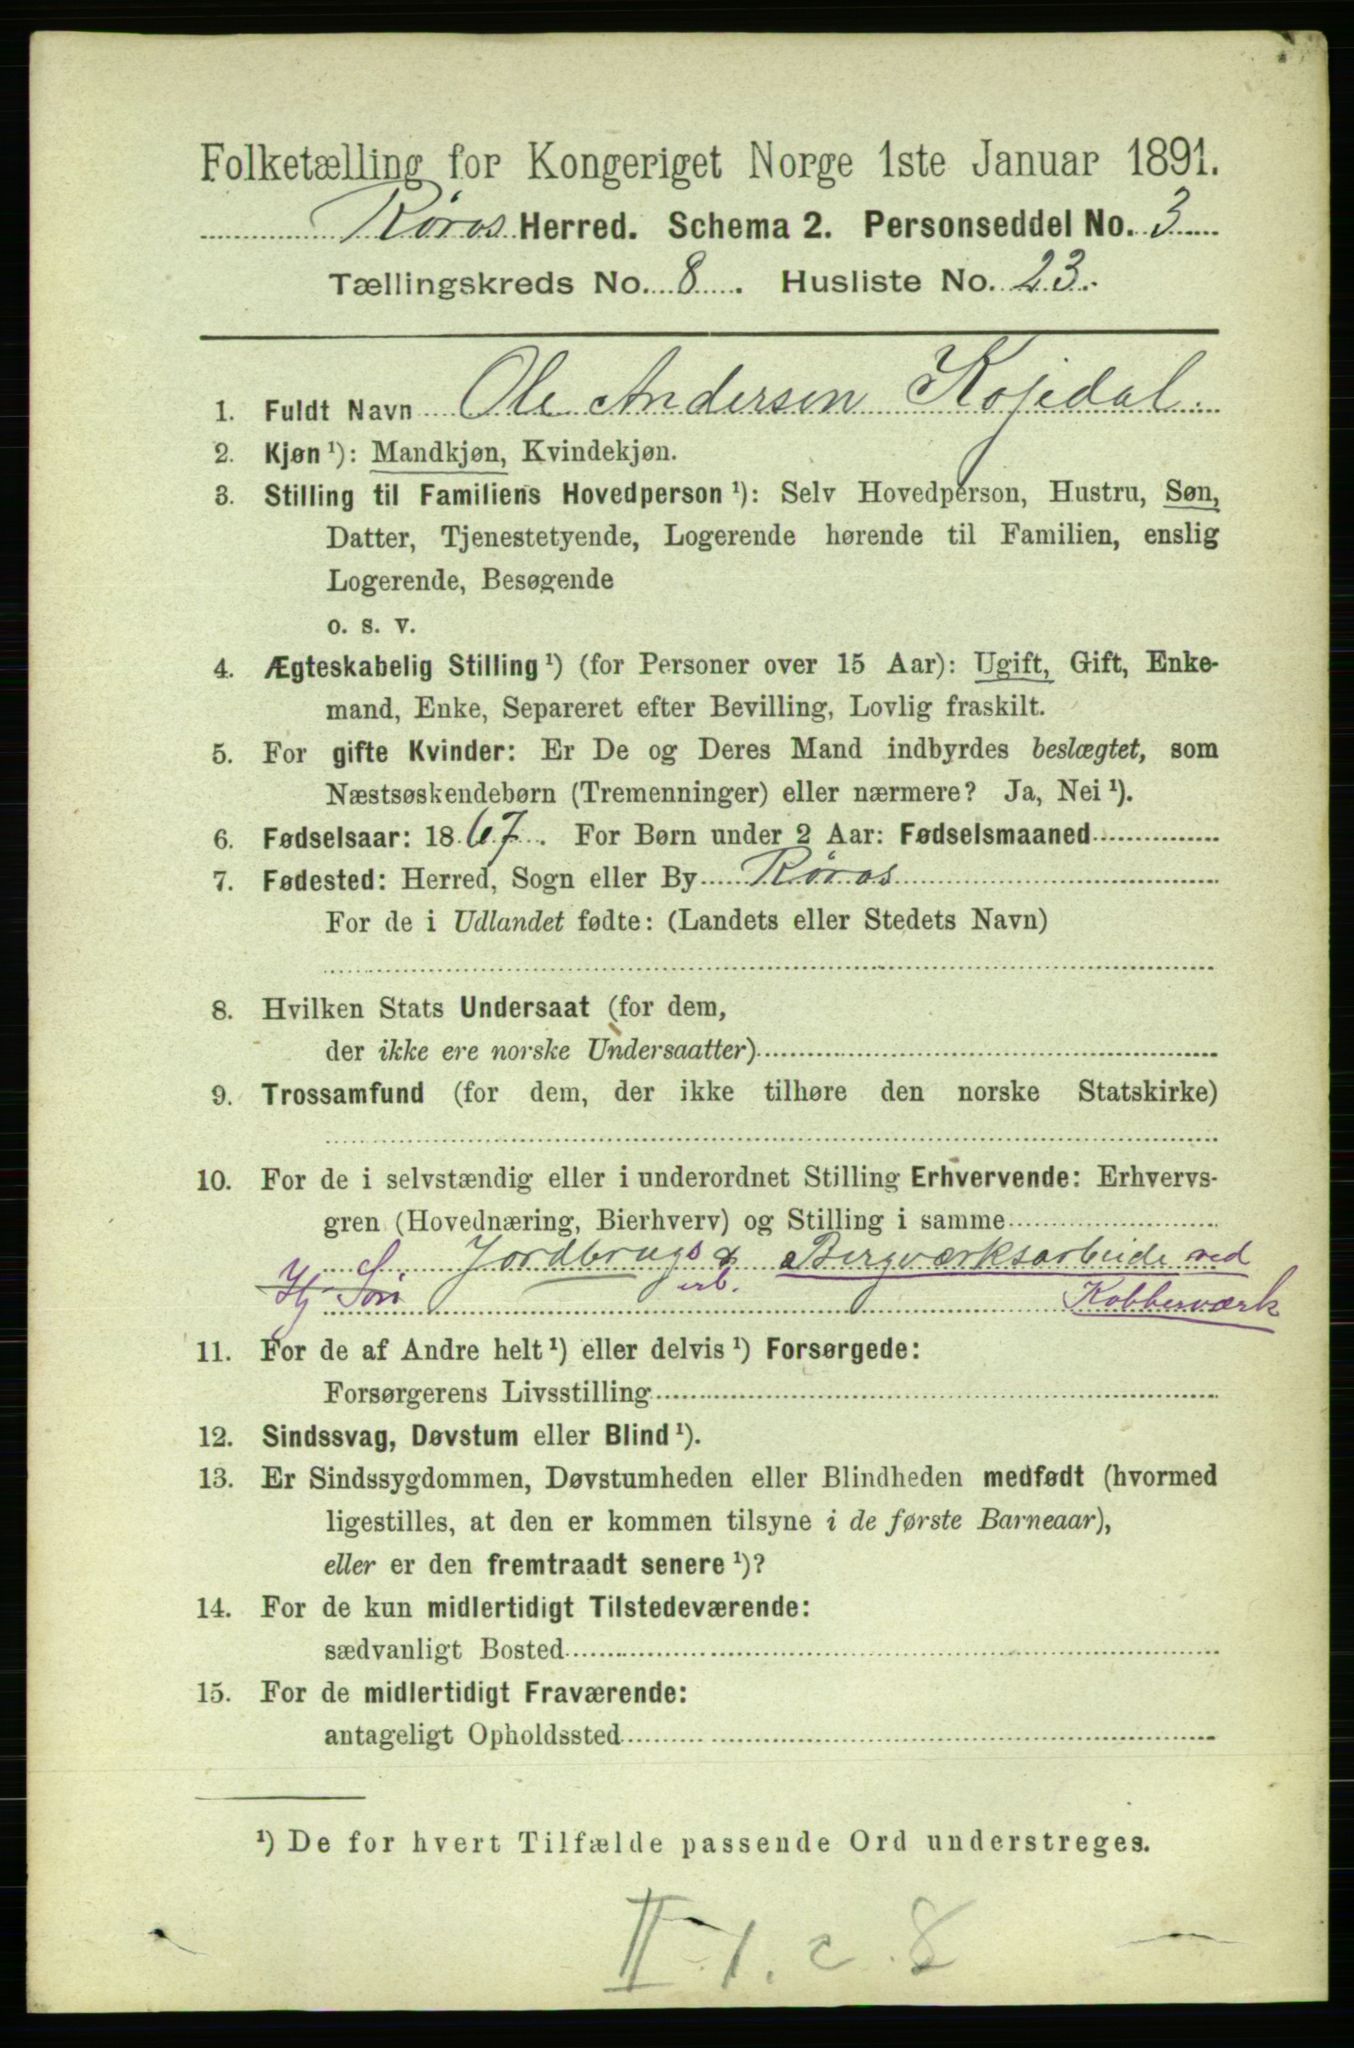 Folketælling for Kongeriget Norge 1ste Januar 1891.
Røros Herred. Schema 2. Personseddel No. 3
Tællingskreds No. 8. Husliste No. 23.
1. Fuldt Navn Ole Andersen Kojedal
2. Kjøn ¹): Mandkjøn, Kvindekjøn.
3. Stilling til Familiens Hovedperson ¹): Selv Hovedperson, Hustru, Søn,
Datter, Tjenestetyende, Logerende hørende til Familien, enslig
Logerende, Besøgende
o. s. v.
4. Ægteskabelig Stilling ¹) (for Personer over 15 Aar): Ugift, Gift, Enke-
mand, Enke, Separeret efter Bevilling, Lovlig fraskilt.
5. For gifte Kvinder: Er De og Deres Mand indbyrdes beslægtet, som
Næstsøskendebørn (Tremenninger) eller nærmere? Ja, Nei ¹).
6. Fødselsaar: 1867. For Børn under 2 Aar: Fødselsmaaned
7. Fødested: Herred, Sogn eller By Røros
For de i Udlandet fødte: (Landets eller Stedets Navn)
8. Hvilken Stats Undersaat (for dem,
der ikke ere norske Undersaatter)
9. Trossamfund (for dem, der ikke tilhøre den norske Statskirke)
10. For de i selvstændig eller i underordnet Stilling Erhvervende: Erhvervs-
gren (Hovednæring, Bierhverv) og Stilling i samme
Jordbrugs & Bergværksarbeide ved
Hj Søn arb. Kobberværk
11. For de af Andre helt ¹) eller delvis ¹) Forsørgede:
Forsørgerens Livsstilling
12. Sindssvag, Døvstum eller Blind ¹).
13. Er Sindssygdommen, Døvstumheden eller Blindheden medfødt (hvormed
ligestilles, at den er kommen tilsyne i de første Barneaar),
eller er den fremtraadt senere ¹)?
14. For de kun midlertidigt Tilstedeværende:
sædvanligt Bosted
15. For de midlertidigt Fraværende:
antageligt Opholdssted
¹) De for hvert Tilfælde passende Ord understreges.
II-1. c. 8